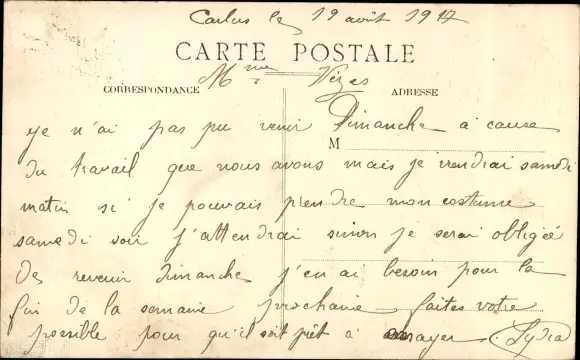 Carlus le 19 août 1917
CARTE POSTALE
Mme Vézes
CORRESPONDANCE
ADRESSE
M
je n'ai pas pu venir Dimanche à cause
du travail que nous avons mais je viendrai samedi
matin si je pouvais prendre mon costume
samedi soir j'attendrai sinon je serai obligée
de revenir dimanche j'en ai besoin pour la
fin de la semaine prochaine faites votre
possible pour qu'il soit prêt à Lydia